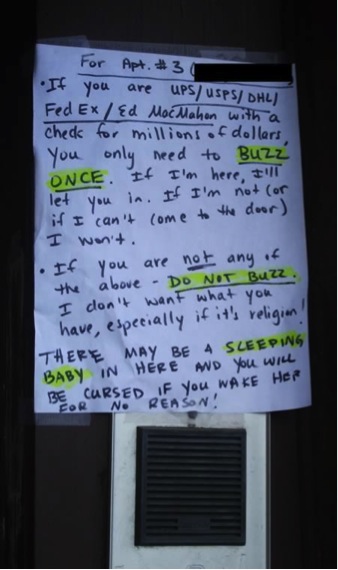 For Apt. #3 (
• If you are UPS/USPS/DHL/
Fed Ex/Ed MacMahon with a
check for millions of dollars,
You only need to BUZZ
ONCE. If I'm here, I'll
let you in. If I'm not (or
if I can't come to the door)
I won't.
• If you are not any of
the above - DO NOT BUZZ.
I don't want what you
have, especially if it's religion!
THERE MAY BE A SLEEPING
BABY IN HERE AND YOU WILL
BE CURSED IF YOU WAKE HER
FOR NO REASON!